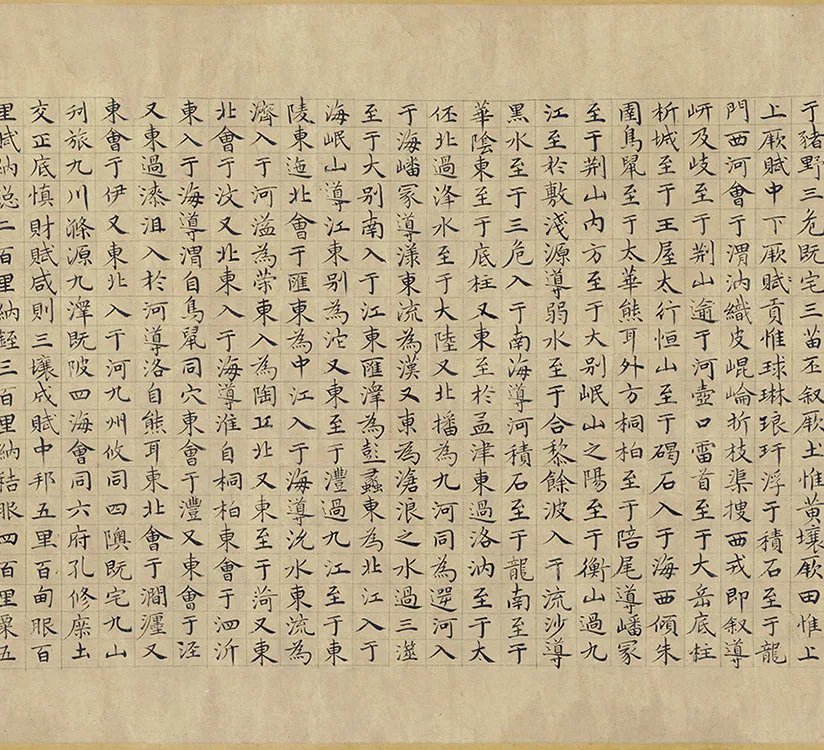 于豬野三危既宅三苗丕叙厥土惟黄壤厥田惟上
上厥賦中下厥賦貢惟球琳琅玕浮于積石至于龍
門西河會于渭汭織皮崐崘析枝渠搜西戎即叙導
岍及岐至于荆山逾于河壺口雷首至于大岳底柱
析城至于王屋太行恒山至于碣石入于海西傾朱
圉鳥鼠至于太華熊耳外方桐柏至于陪尾導嶓冢
至于荆山內方至于大别岷山之陽至于衡山過九
江至於敷淺源導弱水至于合黎餘波入于流沙導
黑水至于三危入于南海導河積石至于龍南至于
華陰東至于底柱又東至於孟津東過洛汭至于太
伾北過洚水至于大陸又北播為九河同為逆河入
于海嶓冢導漾東流為漢又東為滄浪之水過三澨
至于大别南入于江東匯澤為彭蠡東為北江入于
海岷山導江東别為沱又東至于澧過九江至于東
陵東迤北會于匯東為中江入于海導沇水東流為
濟入于河溢為荥東入為陶丘北又東至于菏又東
北會于汶又北東入于海導淮自桐柏東會于泗沂
東入于海導渭自鳥鼠同穴東會于澧又東會于涇
又東過漆沮入於河導洛自熊耳東北會于澗瀍又
東會于伊又東北入于河九州攸同四隩既宅九山
刋旅九川滌源九澤既陂四海會同六府孔修庶土
交正底慎財賦咸則三壤成賦中邦五里百甸服百
里賦納總二百里納銍三百里納秸服四百里粟五